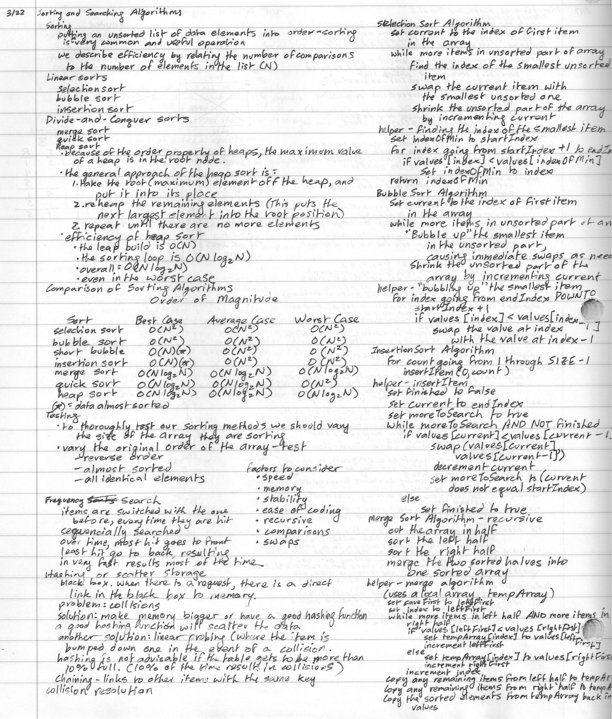 3/22 Sorting and Searching Algorithms
Sorting
putting an unsorted list of data elements into order-sorting
is very common and useful operation
we describe efficiency by relating the number of comparisons
to the number of elements in the list (N)
Linear sorts
selection sort
bubble sort
insertion sort
Divide-and-Conquer sorts
merge sort
quick sort
Heap sort
• because of the order property of heaps, the maximum value
of a heap is in the root node.
• the general approach of the heap sort is:
1. take the root (maximum) element off the heap, and
put it into its place
2. reheap the remaining elements (This puts the
next largest element into the root position)
2. repeat until there are no more elements
• efficiency of heap sort
• the heap build is O(N)
• the sorting loop is O(N log₂N)
• overall = O(N log₂N)
• even in the worst case
Comparison of Sorting Algorithms
Order of Magnitude
Sort Best Case Average Case Worst Case
selection sort O(N²) O(N²) O(N²)
bubble sort O(N²) O(N²) O(N²)
short bubble O(N)(*) O(N²) O(N²)
insertion sort O(N)(*) O(N²) O(N²)
merge sort O(N log₂N) O(N log₂N) O(N log₂N)
quick sort O(N log₂N) O(N log₂N) O(N²)
heap sort O(N log₂N) O(N log₂N) O(N log₂N)
(*) = data almost sorted
Testing
• to thoroughly test our sorting methods we should vary
the size of the array they are sorting
• vary the original order of the array-test
-reverse order
-almost sorted
-all identical elements
factors to consider
• speed
• memory
• stability
• ease of coding
• recursive
• comparisons
• swaps
Frequency Sorts Search
items are switched with the one
before, every time they are hit
sequencially searched
over time, most hit goes to front
least hit go to back, resulting
in very fast results most of the time.
Hashing or scatter storage
black box. when there is a request, there is a direct
link in the black box to memory.
problem: collisions
solution: make memory bigger or have a good hashing function
a good hashing function will scatter the data
another solution: linear probing (where the item is
bumped down one in the event of a collision.
hashing is not advisable if the table gets to be more than
70% full. (10% of the time results in collisions)
Chaining - links to other items with the same key
collision resolution
Selection Sort Algorithm
set current to the index of first item
in the array
while more items in unsorted part of array
find the index of the smallest unsorted
item
swap the current item with
the smallest unsorted one
shrink the unsorted part of the array
by incrementing current
helper - finding the index of the smallest item
set indexOfMin to startIndex
for index going from startIndex +1 to endIn
if values [index] < values [indexOfMin]
set indexOfMin to index
return indexOfMin
Bubble Sort Algorithm
Set current to the index of first item
in the array
while more items in unsorted part of an
"Bubble up" the smallest item
in the unsorted part,
causing immediate swaps as nee
Shrink the unsorted part of the
array by incrementing current
helper - "bubbling up" the smallest item
for index going from endIndex DOWNTO
startIndex +1
if values [index] < values [index - 1]
swap the value at index
with the value at index -1
Insertion Sort Algorithm
For count going from 1 through SIZE-1
insertItem (0, count)
helper - insertItem
set finished to false
set current to endIndex
set moreToSearch to true
while moreToSearch AND NOT finished
if values [current] < values [current - 1
swap (values [current],
values [current-1])
decrement current
set moreToSearch to (current
does not equal startIndex)
else
set finished to true
Merge Sort Algorithm - recursive
cut the array in half
sort the left half
sort the right half
merge the two sorted halves into
one sorted array
helper - merge algorithm
(uses a local array, tempArray)
set saveFirst to leftFirst
set index to leftFirst
while more items in left half AND more items in
right half
if values [leftFirst] < values [rightFirst]
set tempArray [index] to values [leftFirst]
increment leftFirst
else
set tempArray [index] to values [rightFirs
increment rightFirst
increment index
copy any remaining items from left half to tempAr
copy any remaining items from right half to tempA
Copy the sorted elements from tempArray back in
values